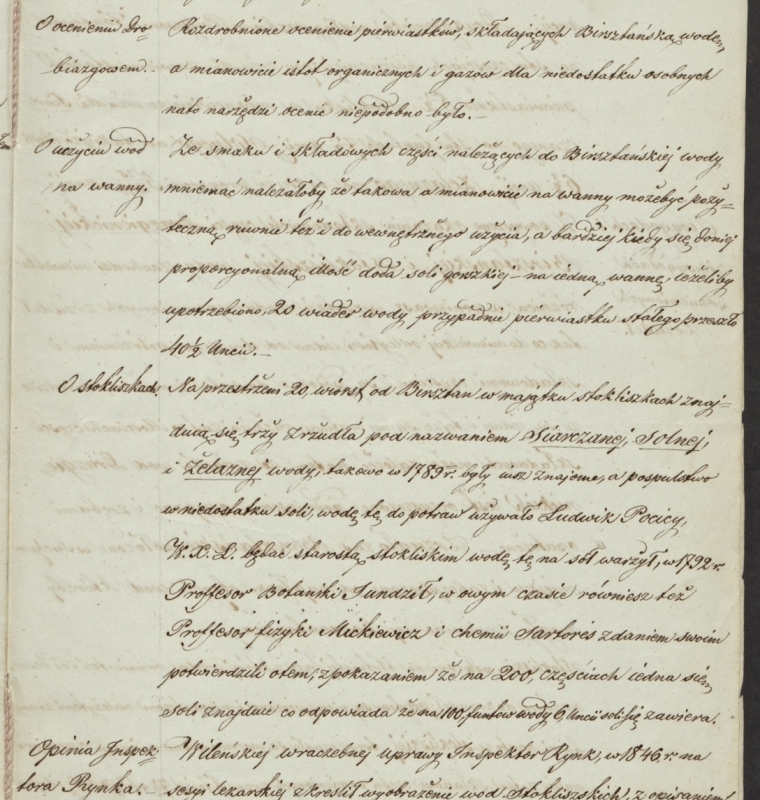 O ocenieniu dro-
biazgowem.
Rozdrobnione ocenienie pierwiastków, składających Birsztańską wodem,
a mianowicie istot organicznych i gazów dla niedostatku osobnych
nato narzędzi ocenic niepodobno było.-
O uczyciu wod
na wanny.
Ze smaku i składowych części należących do Birsztańskiej wody
mniemać należałoby że takowa a mianowicie na wanny możebyć poży=
teczną, rownie też i do wewnętrznego użycia, a bardziej kiedy się doniej
proporcyonalną illość doda soli gorzkiej - na iedną wannę, ieżeliby
upotrzebiono, 20 wiader wody przypadnie pierwiastku stałego przeszło
40½ Uncii.-
O stokliszkach.
Na przestrzeni 20, wiorst od Birsztan w majątku stokliszkach znaj-
duią się trzy zrzudła pod nazwaniem Siarczanej, Solnej,
i Żelaznej wody, takowo w 1789 r. były iusz znajome, a pospulstwo
w niedostatku soli, wodę tę do potraw używało Ludwik Pocicy,
W. X. L. będąć starostą stokliskim wodę tę na sól warzył, w 1792 r.
Proffesor Botaniki Jundził, w owym czasie równiesz też
Proffesor fizyki Mickiewicz i chemii Sartorés zdaniem swoim
potwierdzili otem, z pokazaniem że na 200, częsciach iedna siem
soli znajduie co odpowiada że na 100, funtow wody 6, Uncii soli się zawiera.
Opinia Inspek-
tora Rynka.
Wileńskiej wraczebnej uprawy Inspektor Rynk, w 1846, r. na
sesyi lekarskiej zkreslił wyobrażenie wod Stokliszskich, z opisaniem